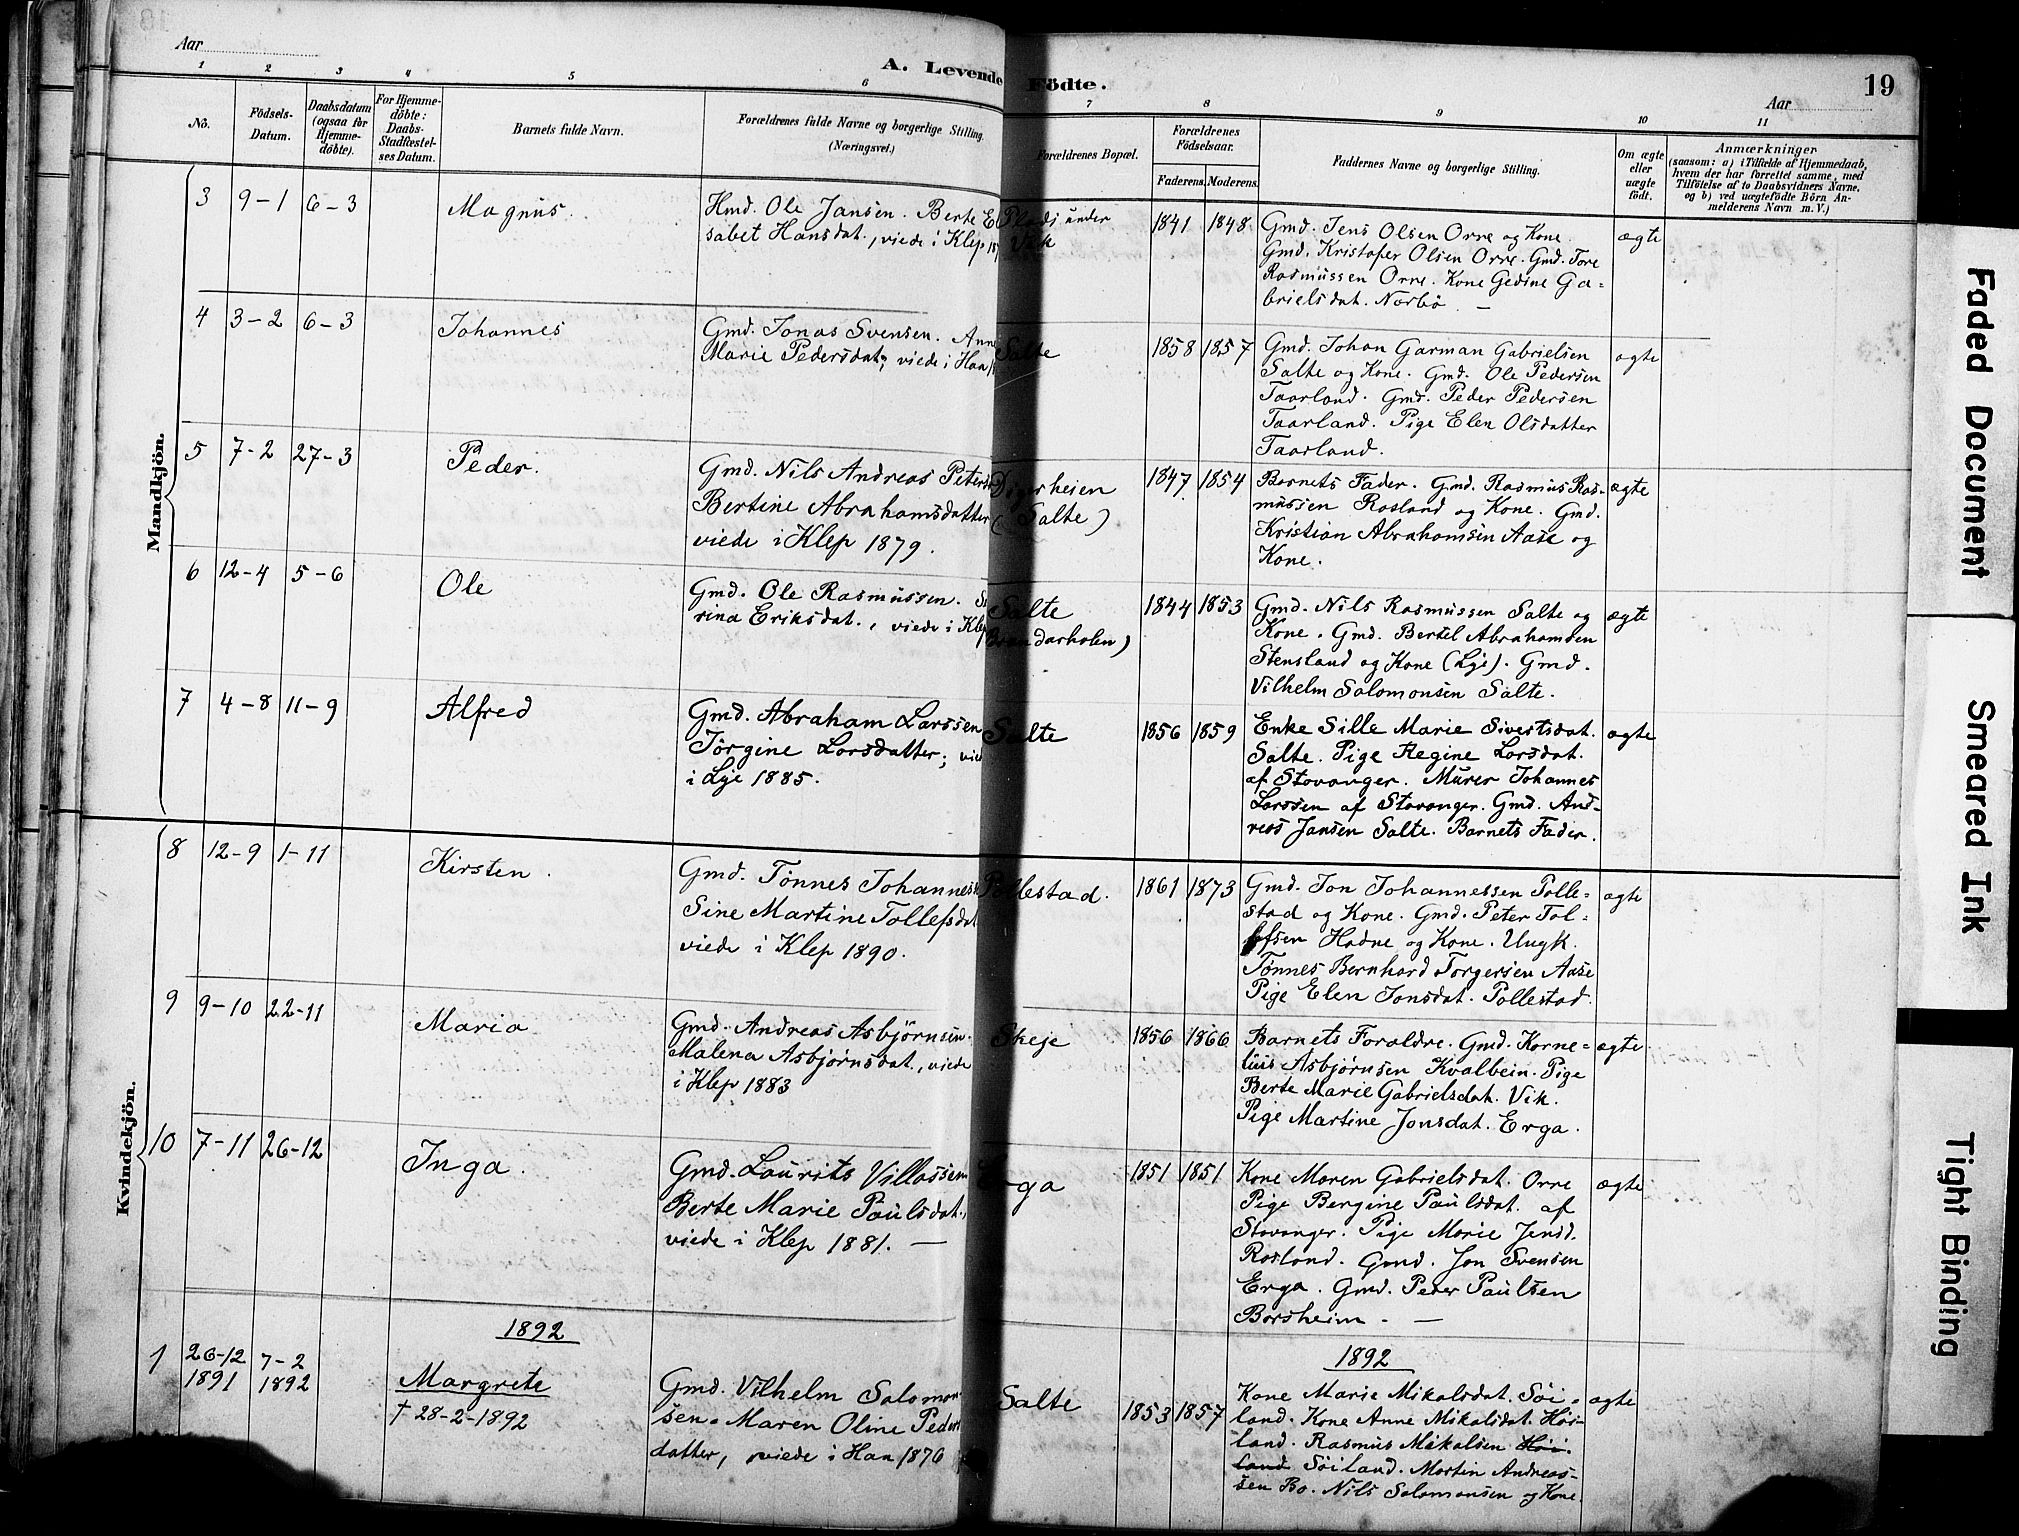 Aar
A. Levende Födte.
19
Aar
1 2 3 4 5 6 7 8 9 10 11
No.
Födsels-
Datum.
Daabsdatum
(ogsaa for
Hjemme-
döbte).
For Hjemme-
döbte:
Daabs-
Stadfæstel-
ses Datum.
Barnets fulde Navn.
Forældrenes fulde Navne og borgerlige Stilling.
(Næringsvei.)
Forældrenes Bopæl.
Forældrenes
Födselsaar.
Faderens. Moderens.
Faddernes Navne og borgerlige Stilling.
Om ægte
eller
uægte
födt.
Anmærkninger
(saasom: a) i Tilfælde af Hjemmedaab,
hvem der har forrettet samme, med
Tilföielse af to Daabsvidners Navne.
og b) ved uægtefödte Börn An-
melderens Navn m. V.)
Mandkjön.
3 9-1 6-3
Magnus.
Hmd. Ole Jansen. Berte E
sabet Hansdat., viede i Klep
Plads under
Vik
1841 1848
Gmd. Jens Olsen Orre og Kone.
Gmd. Kristofer Olsen Orre. Gmd. Tore
Rasmussen Orre. Kone Gedine Ga-
brielsdat. Norbø —
ægte
4 3-2 6-3
Johannes
Gmd. Jonas Svensen. Anne
Marie Pedersdat; viede i Haa
Salte
1858 1857
Gmd. Johan Garman Gabrielsen
Salte og Kone. Gmd. Ole Pedersen
Taarland. Gmd. Peder Pedersen
Taarland. Pige Elen Olsdatter
Taarland.
ægte
5 7-2 27-3
Peder.
Gmd. Nils Andreas Peters
Bertine Abrahamsdatter
viede i Klep 1879.
heien
(Salte)
1847 1854
Barnets Fader. Gmd. Rasmus Ras-
mussen Rosland og Kone. Gmd.
Kristian Abrahamsen Aase og
Kone.
ægte
6 12-4 5-6
Ole
Gmd. Ole Rasmussen. Se
rina Eriksdat., viede i Klep
Salte
1844 1853
Gmd. Nils Rasmussen Salte og
Kone. Gmd. Bertel Abrahamsen
Stensland og Kone (Lye). Gmd.
Vilhelm Salomonsen Salte.
ægte
7 4-8 11-9
Alfred
Gmd. Abraham Larssen
Jörgine Larsdatter; vie
i Lye 1885.
Salte
1856 1859
Enke Sille Marie Sivertsdat.
Salte. Pige Regine Larsdat.
af Stavanger. Murer Johannes
Larssen af Stavanger. Gmd. And-
reas Jansen Salte. Barnets Fader.
ægte
Kvindekjön.
8 12-9 1-11
Kirsten.
Gmd. Tönnes Johannes
Sine Martine Tollefsdat
viede i Klep 1890.
Pollestad.
1861 1873
Gmd. Jon Johannessen Polle-
stad og Kone. Gmd. Peter Tol-
lefsen Hadne og Kone. Ungk.
Tønnes Bernhard Torgersen Aase
Pige Elen Jonsdat. Pollestad.
ægte
9 9-10 22-11
Maria
Gmd. Andreas Asbjørnsen.
Malena Asbjørnsdat., viede
i Klep 1883
Skeje
1856 1866
Barnets Foraldre. Gmd. Korne-
lius Asbjørnsen Kvalbein. Pige
Berte Marie Gabrielsdat. Vik.
Pige Martine Jonsdat. Erga.
ægte
10 7-11 26-12
Inga.
Gmd. Laurits Villassen
Berte Marie Paulsdat.,
viede i Klep 1881. —
Erga
1851 1851
Kone Maren Gabrielsdat. Orre
Pige Bergine Paulsdat. af
Stavanger. Pige Marie Jensd.
Rosland. Gmd. Jon Svensen
Erga. Gmd. Peder Paulsen
Borsheim. —
ægte
1892
1892
1 26-12 7-2
1891 1892
Margrete
† 28-2-1892
Gmd. Vilhelm Salomon
sen. Maren Oline Peders
datter, viede i Haa 1876
Salte
1853 1857
Kone Marie Mikalsdat. Söi-
land. Kone Anne Mikalsdat. Höi-
land. Rasmus Mikalsen Höi-
land Söiland. Martin Andreas-
sen Bo. Nils Salomonsen og Kone.
ægte
Faded Document
Smeared Ink
Tight Binding